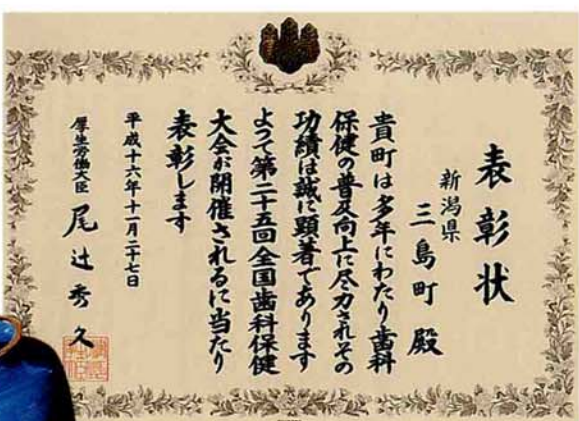 表彰状
新潟県
三島町 殿
貴町は多年にわたり歯科
保健の普及向上に尽力されその
功績は誠に顕著であります
よつて第二十五回全国歯科保健
大会が開催されるに当たり
表彰します
平成十六年十一月二十七日
厚生労働大臣 尾辻秀久